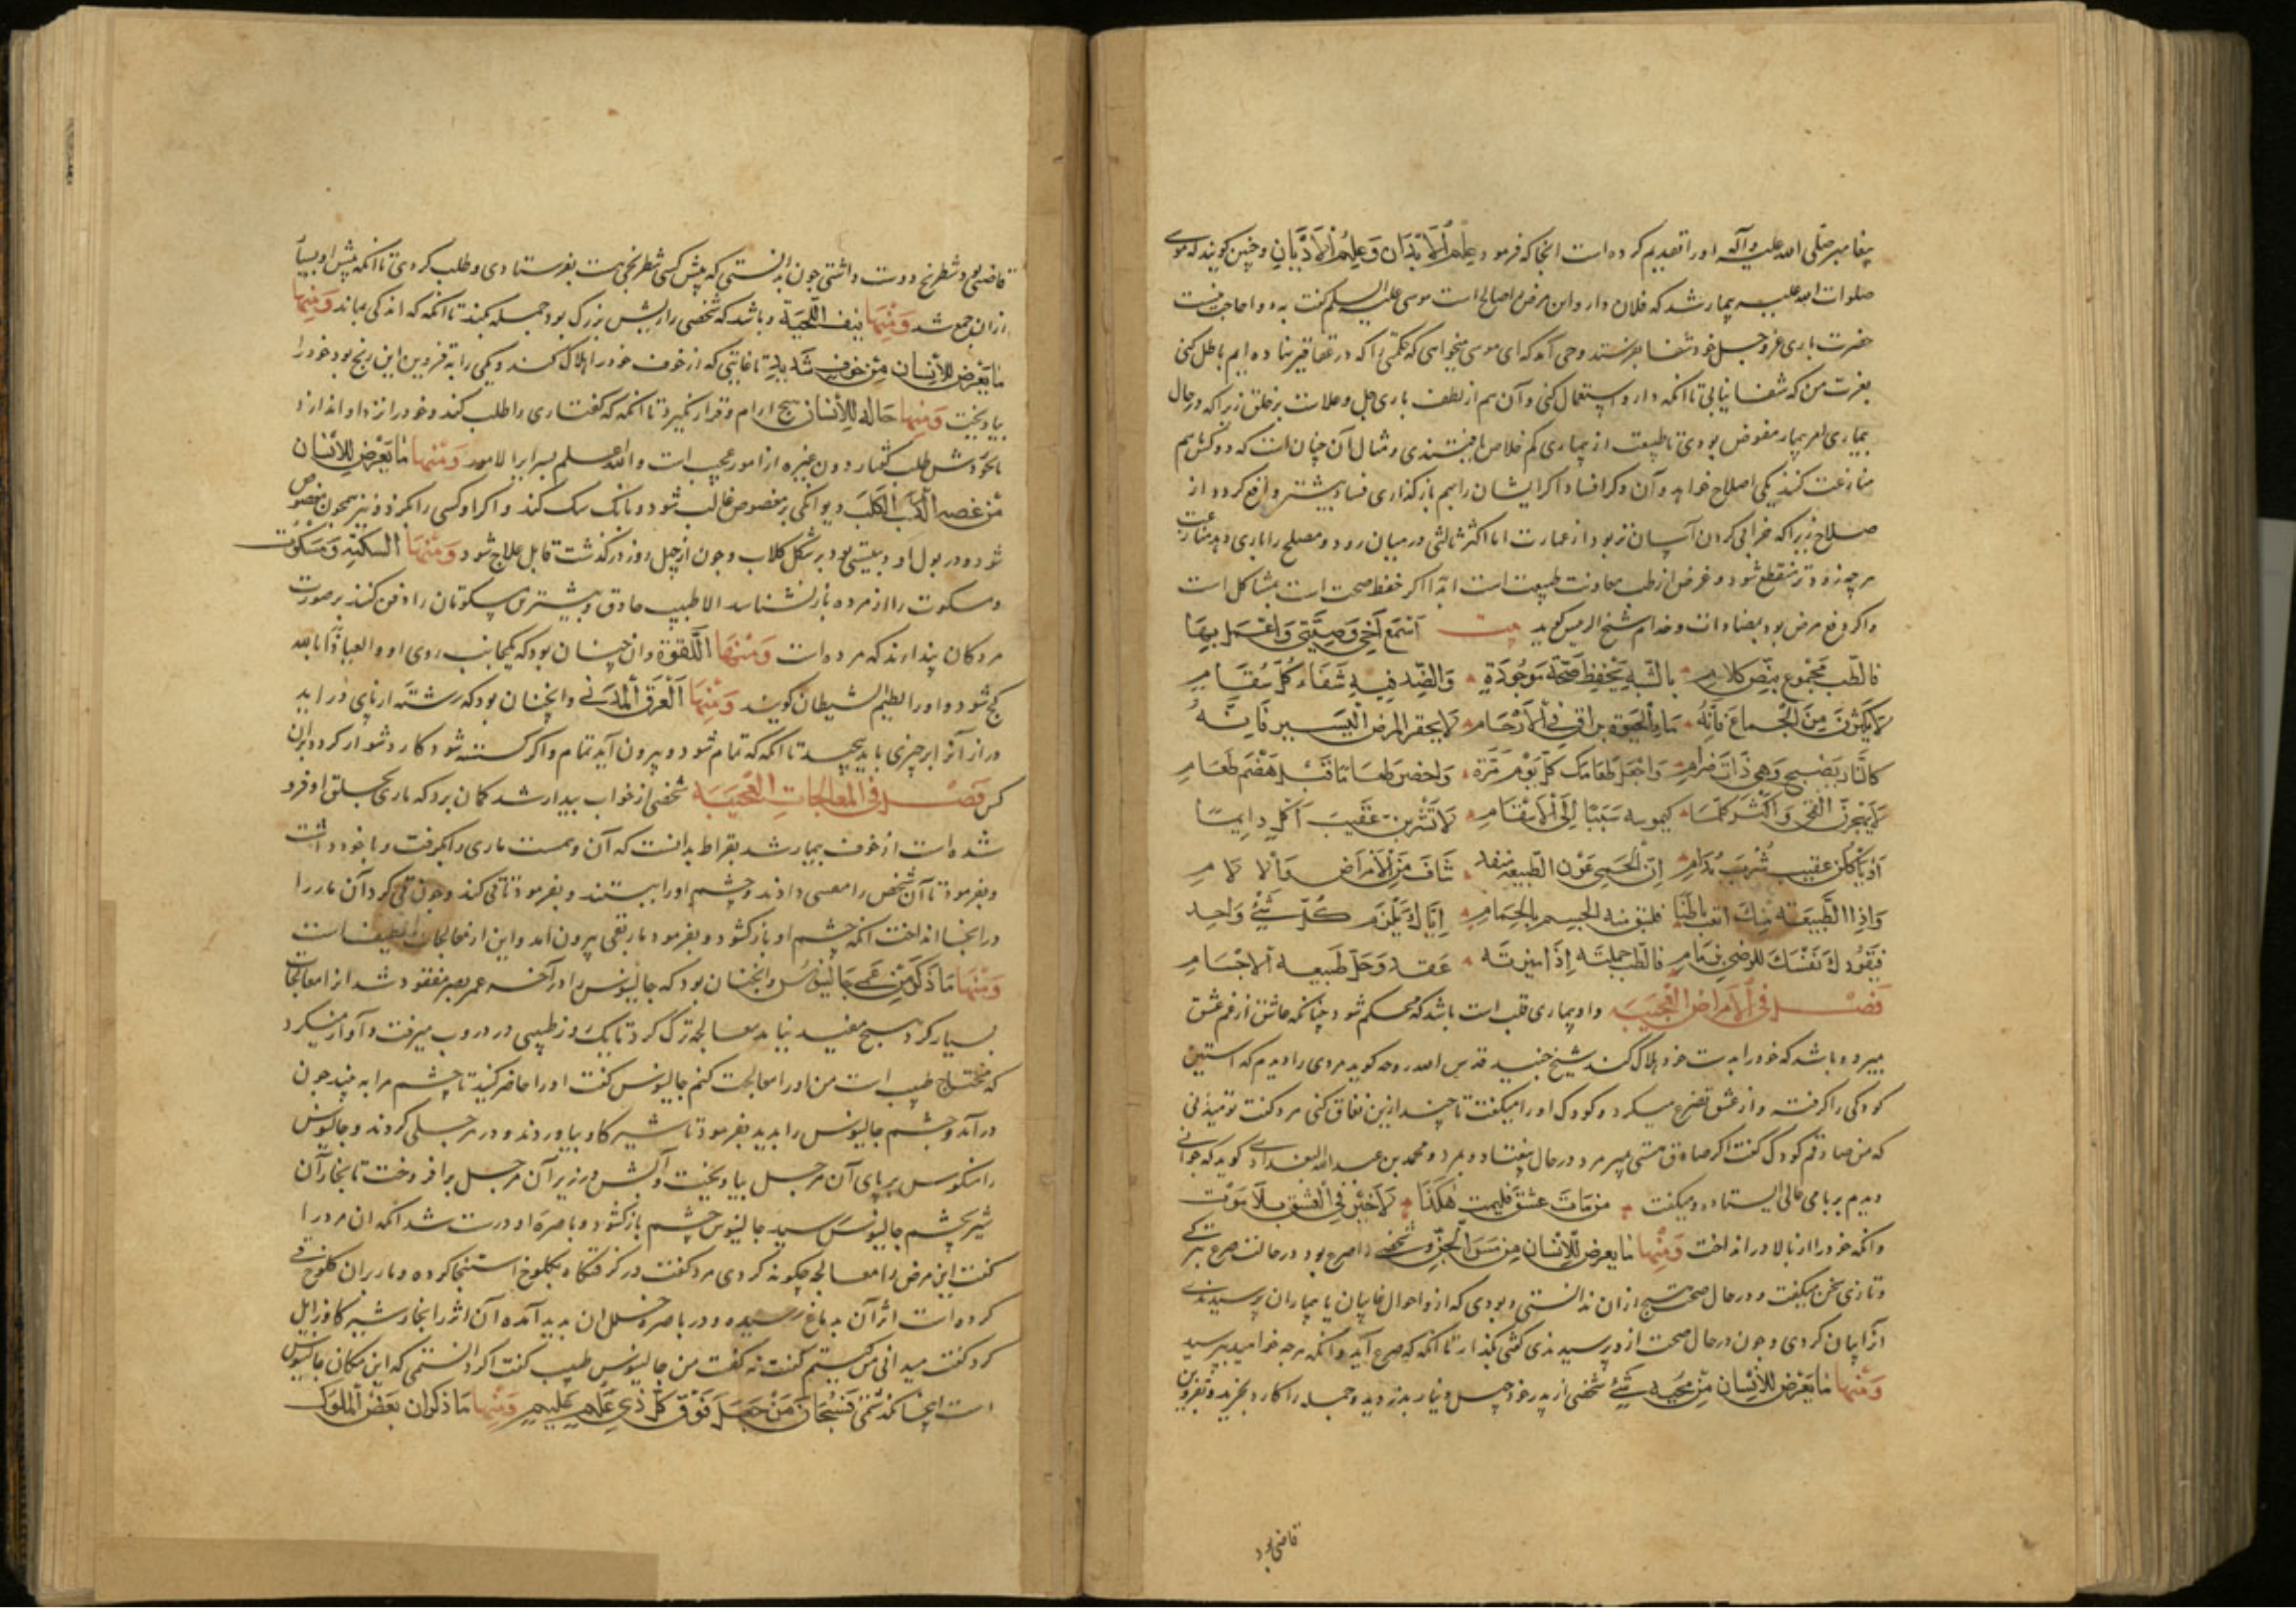 پیغامبر صلی الله علیه وآله اورا تقدیم کرده است انجا که فرمود علم الابدان وعلم الادیان وچنین کویند که موسی
صلوات الله علیه بیمار شد که فلان دارو این مرض را صالح است موسی علیه السلم کفت به دوا حاجت نیست
حضرت باری عز وجل خود شفا بفرستد وحی آمد که ای موسی میخواهی که حکمتی را که در عقاقیر نهاده ایم باطل کنی
بعزت من که شفا نیابی تا انکه دارو استعمال کنی و آن هم از لطف باری جل وعلاست بر خلق زیرا که در حال
بیماری امر بیمار مفوض بودی تا طبیعت از بیماری کم خلاص یافتندی ومثال آن چنان است که دو کس باهم
منازعت کنند یکی اصلاح خواهد و آن دکر افساد اکر ایشان را بهم باز کذاری فساد بیشتر واقع کردد از
صلاح زیرا که خرابی کردن آسان تر بود از عمارت اما اکثر ثالثی در میان رود و مصلح را یاری دهد منازعت
هرچه زودتر منقطع شود وغرض از طب معاونت طبیعت است اما اکر حفظ صحت است بمشاکل است
واکر دفع مرض بود بمضادات وخدام شیخ الرییس کوید بیت اسمع اخی وصیتی واعمل بها
فالطب مجموع بنص کلام بالشبه یحفظ صحة موجودة والضد فیه شفاء کل سقام
لا یکثرن من الجماع فانه ماء الحیوة یراق فی الارحام لا یحقر المرض الیسیر فانه
کالنار یصبح وهی ذات ضرام واجعل طعامک کل یوم مرة واحضر طعاما قبل هضم طعام
لا یهجرن القی واکثر کلما کیموسه سببا الی الاسقام لا تشربن عقیب اکل دایما
او یاکلن عقیب شرب مدام ان الحمی عون الطبیعة شاف من الامراض والالام
واذا الطبیعة منک باطنا الجسم بالحمام ایاک یلزم کل شیء واحد
فیقود ک نفسک للرضی بزمام فالطب جملته اذا میزته عقد وحل طبیعة الاجسام
فصل فی الامراض العجیبه واو بیماری قلب است باشد که محکم شود چنانکه عاشق از غم عشق
بمیرد وباشد که خود را بدست خود هلاک کند شیخ جنید قدس الله روحه کوید مردی را دیدم که استین
کودکی را کرفته واز عشق تضرع میکرد وکودک اورا میکفت تا چند ازین نفاق کنی مرد کفت تو میدانی
که من صادقم کودک کفت اکر صادق هستی بمیر مرد در حال بیفتاد وبمرد و محمد بن عبد الله البغدادی کوید که جوانی
دیدم بر بامی عالی ایستاده ومیکفت من مات عشقا فلیمت هکذا لا خیر فی العشق بلا موت
وانکه خود را از بالا در انداخت ومنها ما یعرض للانسان من مس الجن وشخصی را صرع بود در حالت صرع ترکی
وتازی سخن میکفت ودر حال صحت هیچ ازان ندانستی وبودی که ازو احوال غایبان یا بیماران پرسیدندی
انرا بیان کردی وچون در حال صحت ازو پرسیدندی کفتی بکذار تا انکه که صرع آید وانکه هرچه خواهید بپرسید
ومنها ما یعرض للانسان من محبة شیء شخصی از پدر خود چهل دینار بدزدید وجمله را کارد بخرید وبقزوین
قاضی بود
قاضی بود شطرنج دوست داشتی چون بدانستی که پیش کسی شطرنجی هست بفرستادی وطلب کردی تا انکه پیش او بسیار
ازان جمع شد ومنها نتف اللحیة وباشد که شخصی را ریش بزرک بود جمله بکند تا انکه که اندکی بماند ومنها
ما یعرض للانسان من خوف شدید تا غایتی که از خوف خود را هلاک کند ویکی را به قزوین این رنج بود خود را
بیاویخت ومنها حاله للانسان هیچ ارام وقرار نکیرد تا انکه که کفتاری را طلب کند وخود را نزد او اندازد
تا بخوردش طلب کفتار دون غیره از امور عجیب است والله اعلم بسرایر الامور ومنها ما یعرض للانسان
من عضه الکلب الکلب دیوانکی بر معضوض غالب شود وبانک سک کند واکر او کسی را بکزد او نیز همچون معضوض
شود ودر بول او دهنیتی بود بر شکل کلاب وچون از چهل روز در کذشت قابل علاج شود ومنها السکتة ومسکوت
ومسکوت را از مرده باز نشناسد الا طبیب حاذق وبیشترین مسکوتان را دفن کنند بر صورت
مردکان پندارند که مرده است ومنها اللقوة وان چنان بود که یکجانب روی او والعیاذ بالله
کج شود واورا لطیم الشیطان کویند ومنها العرق المدنی وانچنان بود که رشته از پای در اید
دراز آنرا بر چیزی باید پیچید تا انکه که تمام شود وبیرون آید تمام واکر کسسته شود کار دشوار کردد بران
کس فصل فی المعالجات العجیبه شخصی از خواب بیدار شد کمان برد که ماری بحلق او فرو
شده است از خوف بیمار شد بقراط بدانست که آن وهمست ماری را بکرفت وبا خود داشت
وبفرمود تا آن شخص را مسهل دادند وچشم اورا ببستند وبفرمود تا قی کند وچون قی کرد آن مار را
در انجا انداخت انکه چشم او باز کشود وبفرمود مار بقی بیرون امد واین از معالجات لطیف است
ومنها ما ذکر من عمی جالینوس وانچنان بود که جالینوس را در آخر عمر بصر مفقود شد انرا معالجات
بسیار کرد هیچ مفید نیامد معالجه ترک کرد تا یک روز طبیبی در دروب میرفت وآواز میکرد
که محتاج طبیب است من اورا معالجت کنم جالینوس کفت اورا حاضر کنید تا چشم مرا به بیند چون
در آمد وچشم جالینوس را بدید بفرمود تا شیر کاو بیاوردند ودر مرجلی کردند وجالینوس
را منکوس بر بالای آن مرجل بیاویخت وآتش در زیر آن مرجل برافروخت تا بخار آن
شیر بچشم جالینوس رسید جالینوس چشم باز کشود وباصره او درست شد انکه ان مرد را
کفت این مرض را معالجه چکونه کردی مرد کفت در کرفتکاه بکلوخ استنجا کرده وماربران کلوخ قی
کرده است اثر آن به دماغ رسیده ودر باصره خللی ازان بدید آمده آن اثر را بخار شیر کاو زایل
کرد کفت میدانی من کیستم کفت نه کفت من جالینوس طبیب کفت اکر دانستمی که این مکان جالینوس
است اینجا نکذشتمی فسبحان من جعل فوق کل ذی علم علیم ومنها ما ذکر ان بعض الملوک